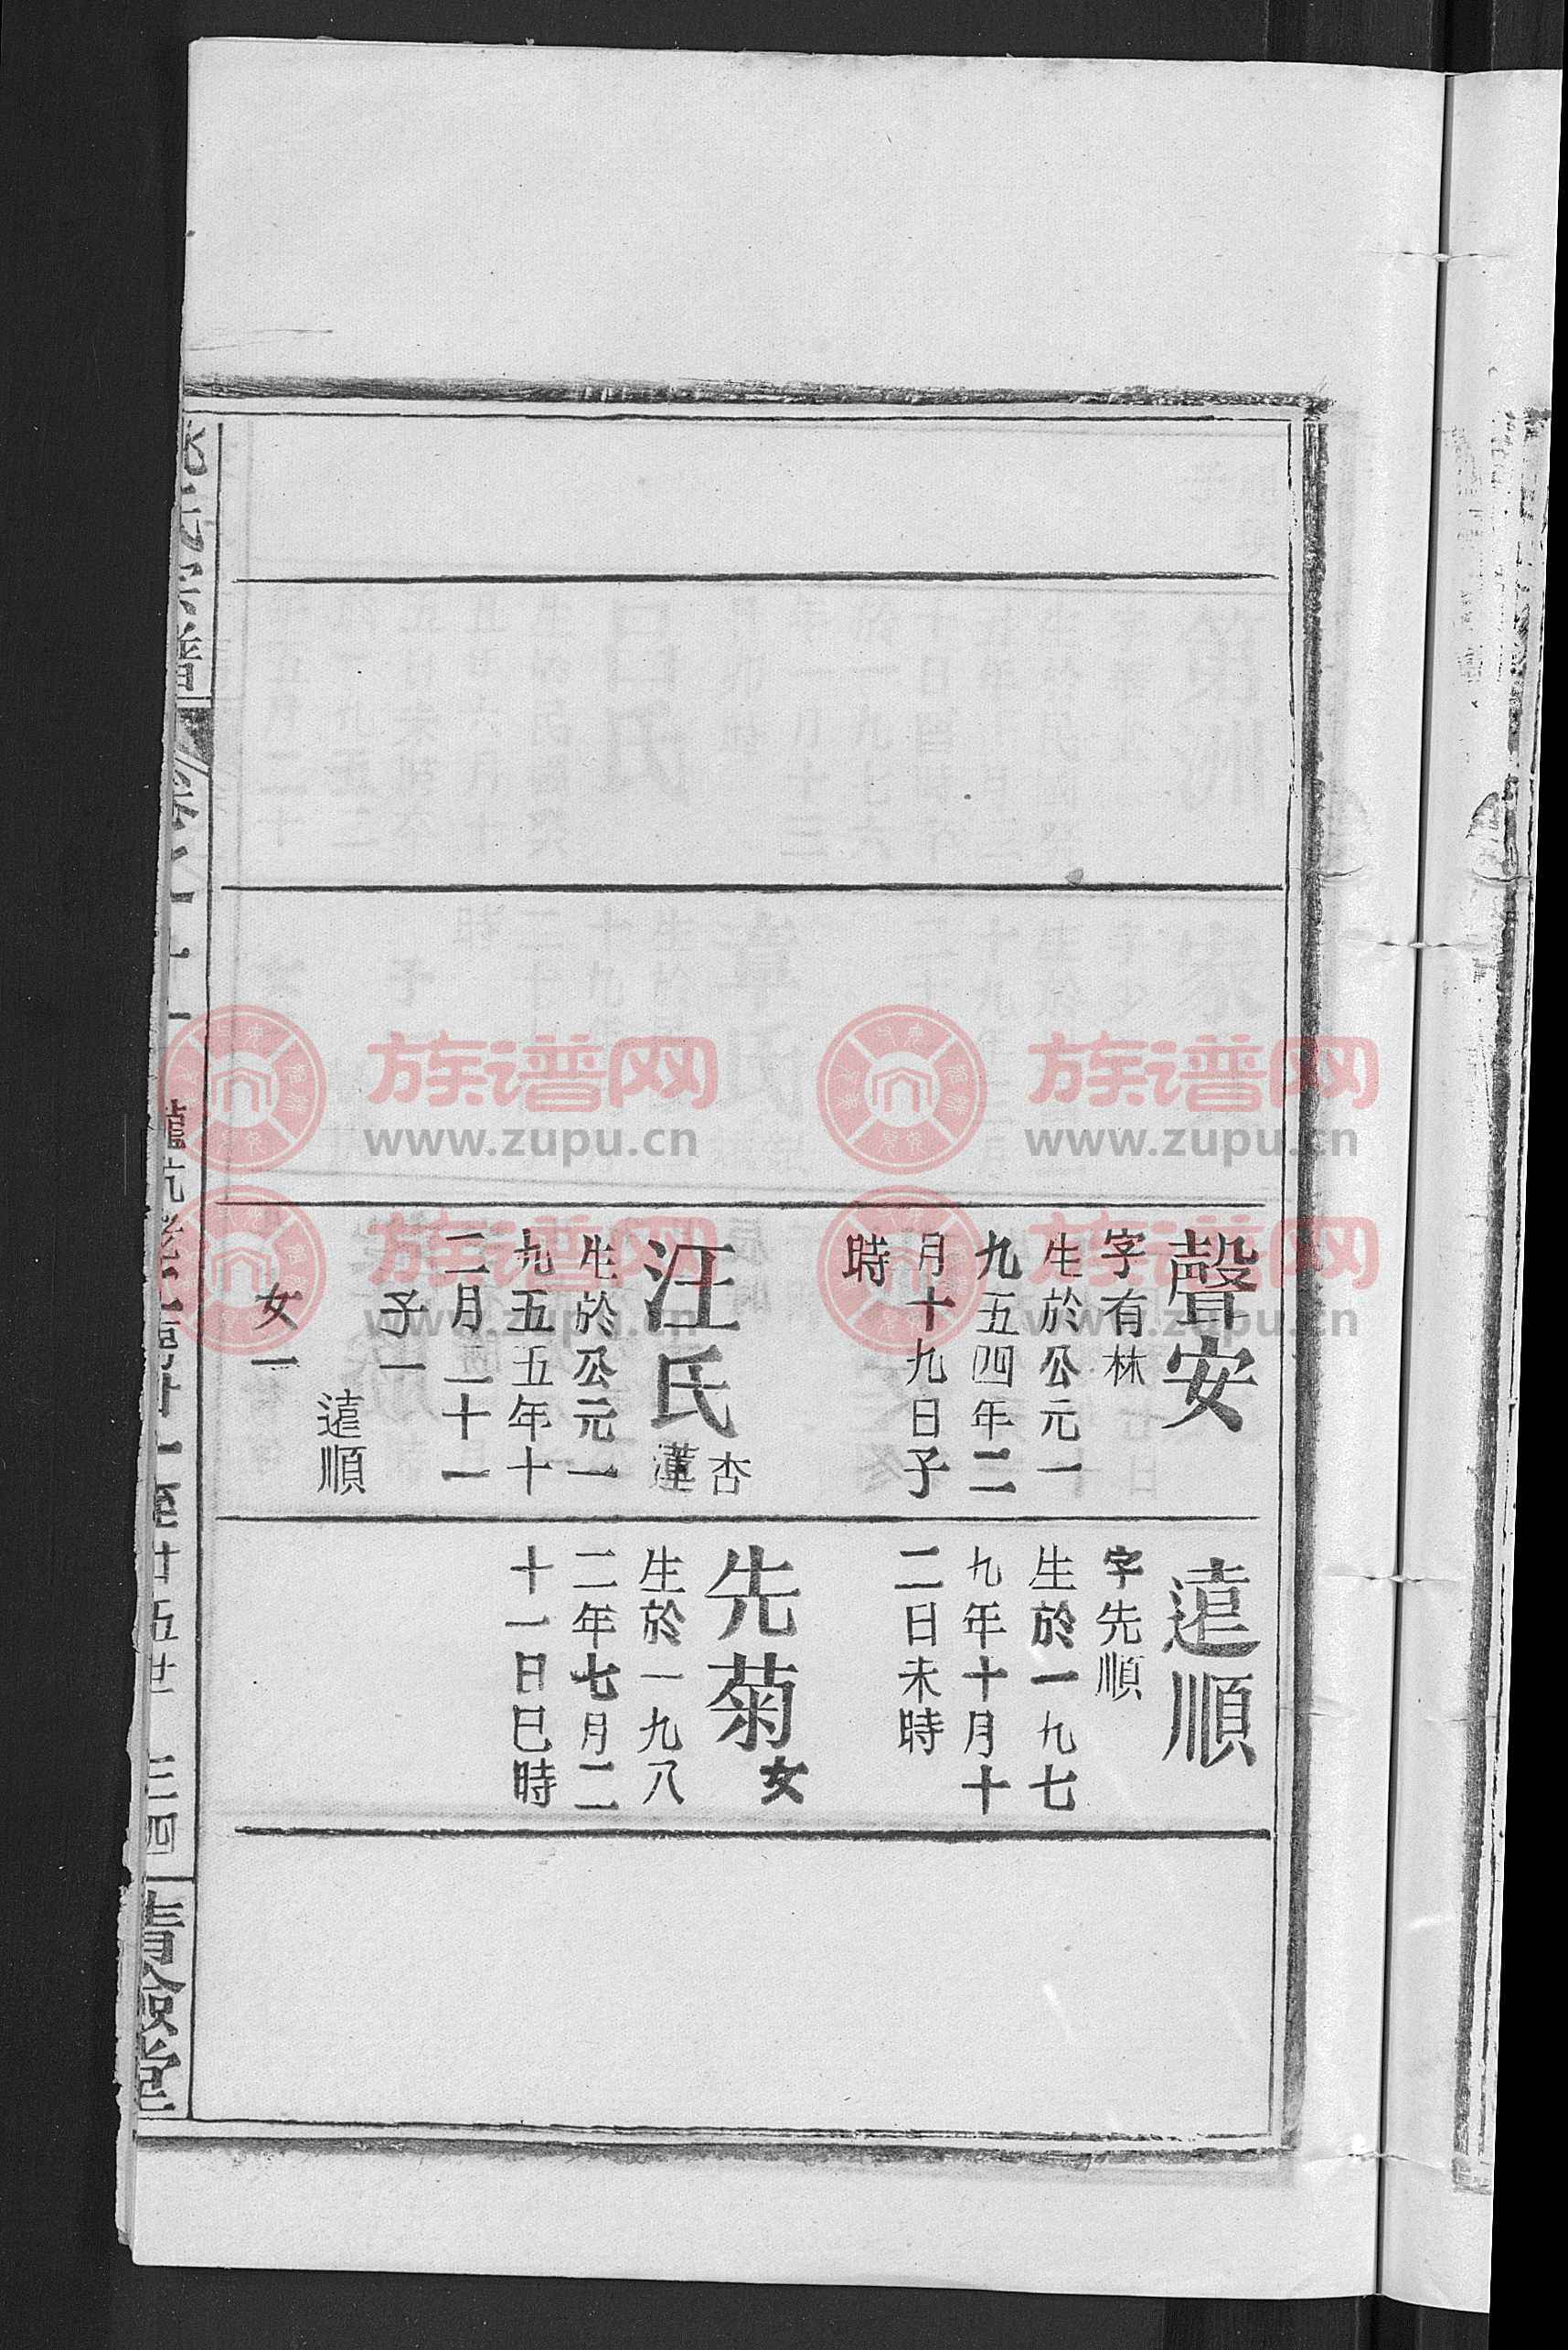 聲安
字有林
生於公元一
九五四年二
月十九日子
時
汪氏
杏
蓮
生於公元一
九五五年十
二月二十一
子一
遠順
女一
遠順
字先順
生於一九七
九年十月十
二日未時
先菊
女
生於一九八
二年七月二
十一日巳時
至廿五世 三四
族谱网
www.zupu.cn
族谱网
www.zupu.cn
族谱网
www.zupu.cn
族谱网
www.zupu.cn